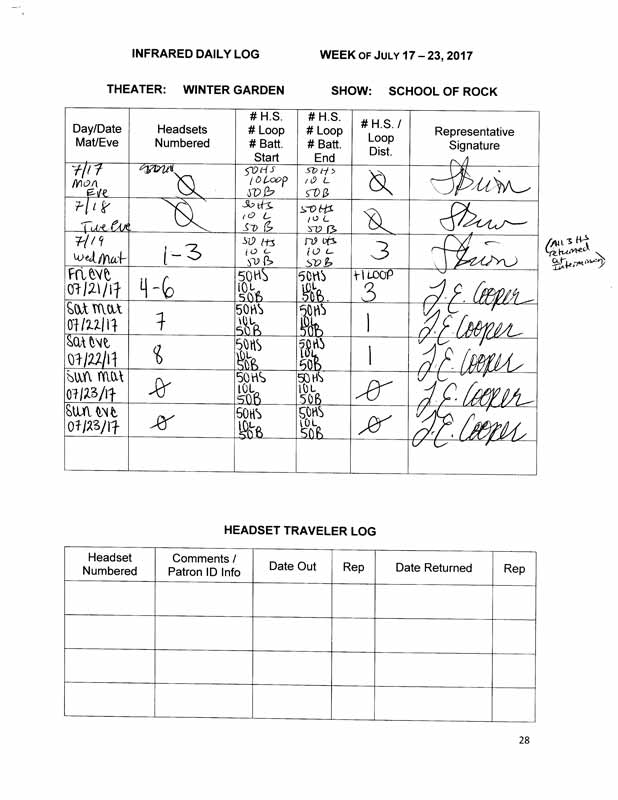 INFRARED DAILY LOG WEEK OF JULY 17 – 23, 2017
THEATER: WINTER GARDEN SHOW: SCHOOL OF ROCK
Day/Date Mat/Eve Headsets Numbered # H.S. # Loop # Batt. Start # H.S. # Loop # Batt. End # H.S. / Loop Dist. Representative Signature
7/17 Mon Eve 0 50HS 10Loop 50B 50HS 10 L 50B 0
7/18 Tue Eve 0 50HS 10 L 50 B 50HS 10 L 50 B 0
7/19 Wed Mat 1-3 50 HS 10 L 50 B 50 HS 10 L 50 B 3 (All 3 HS returned at intermission)
Fri eve 07/21/17 4-6 50HS 10L 50B 50HS 10L 50B. +1 LOOP 3 J.E. Cooper
Sat mat 07/22/17 7 50HS 10L 50B 50HS 10L 50B 1 J.E. Cooper
Sat eve 07/22/17 8 50HS 10L 50B 50HS 10L 50B 1 J.E. Cooper
Sun mat 07/23/17 0 50HS 10L 50B 50HS 10L 50B 0 J.E. Cooper
Sun eve 07/23/17 0 50HS 10L 50B 50HS 10L 50B 0 J.E. Cooper
HEADSET TRAVELER LOG
Headset Numbered Comments / Patron ID Info Date Out Rep Date Returned Rep
28